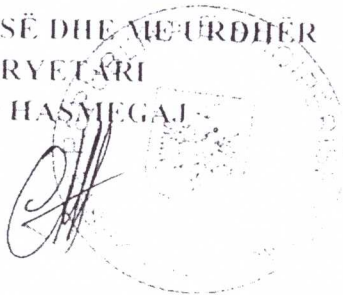 SË DHE ME URDHËR
RYETARI
HASMEGAJ